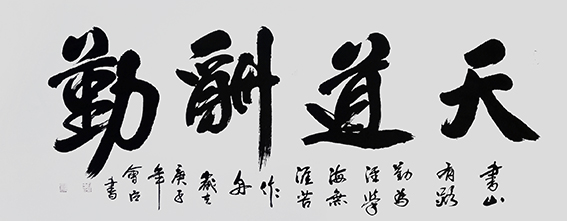 天道酬勤
書山
有路
勤為
徑學
海無
涯苦
作
舟
歲在
庚子
年
會
書